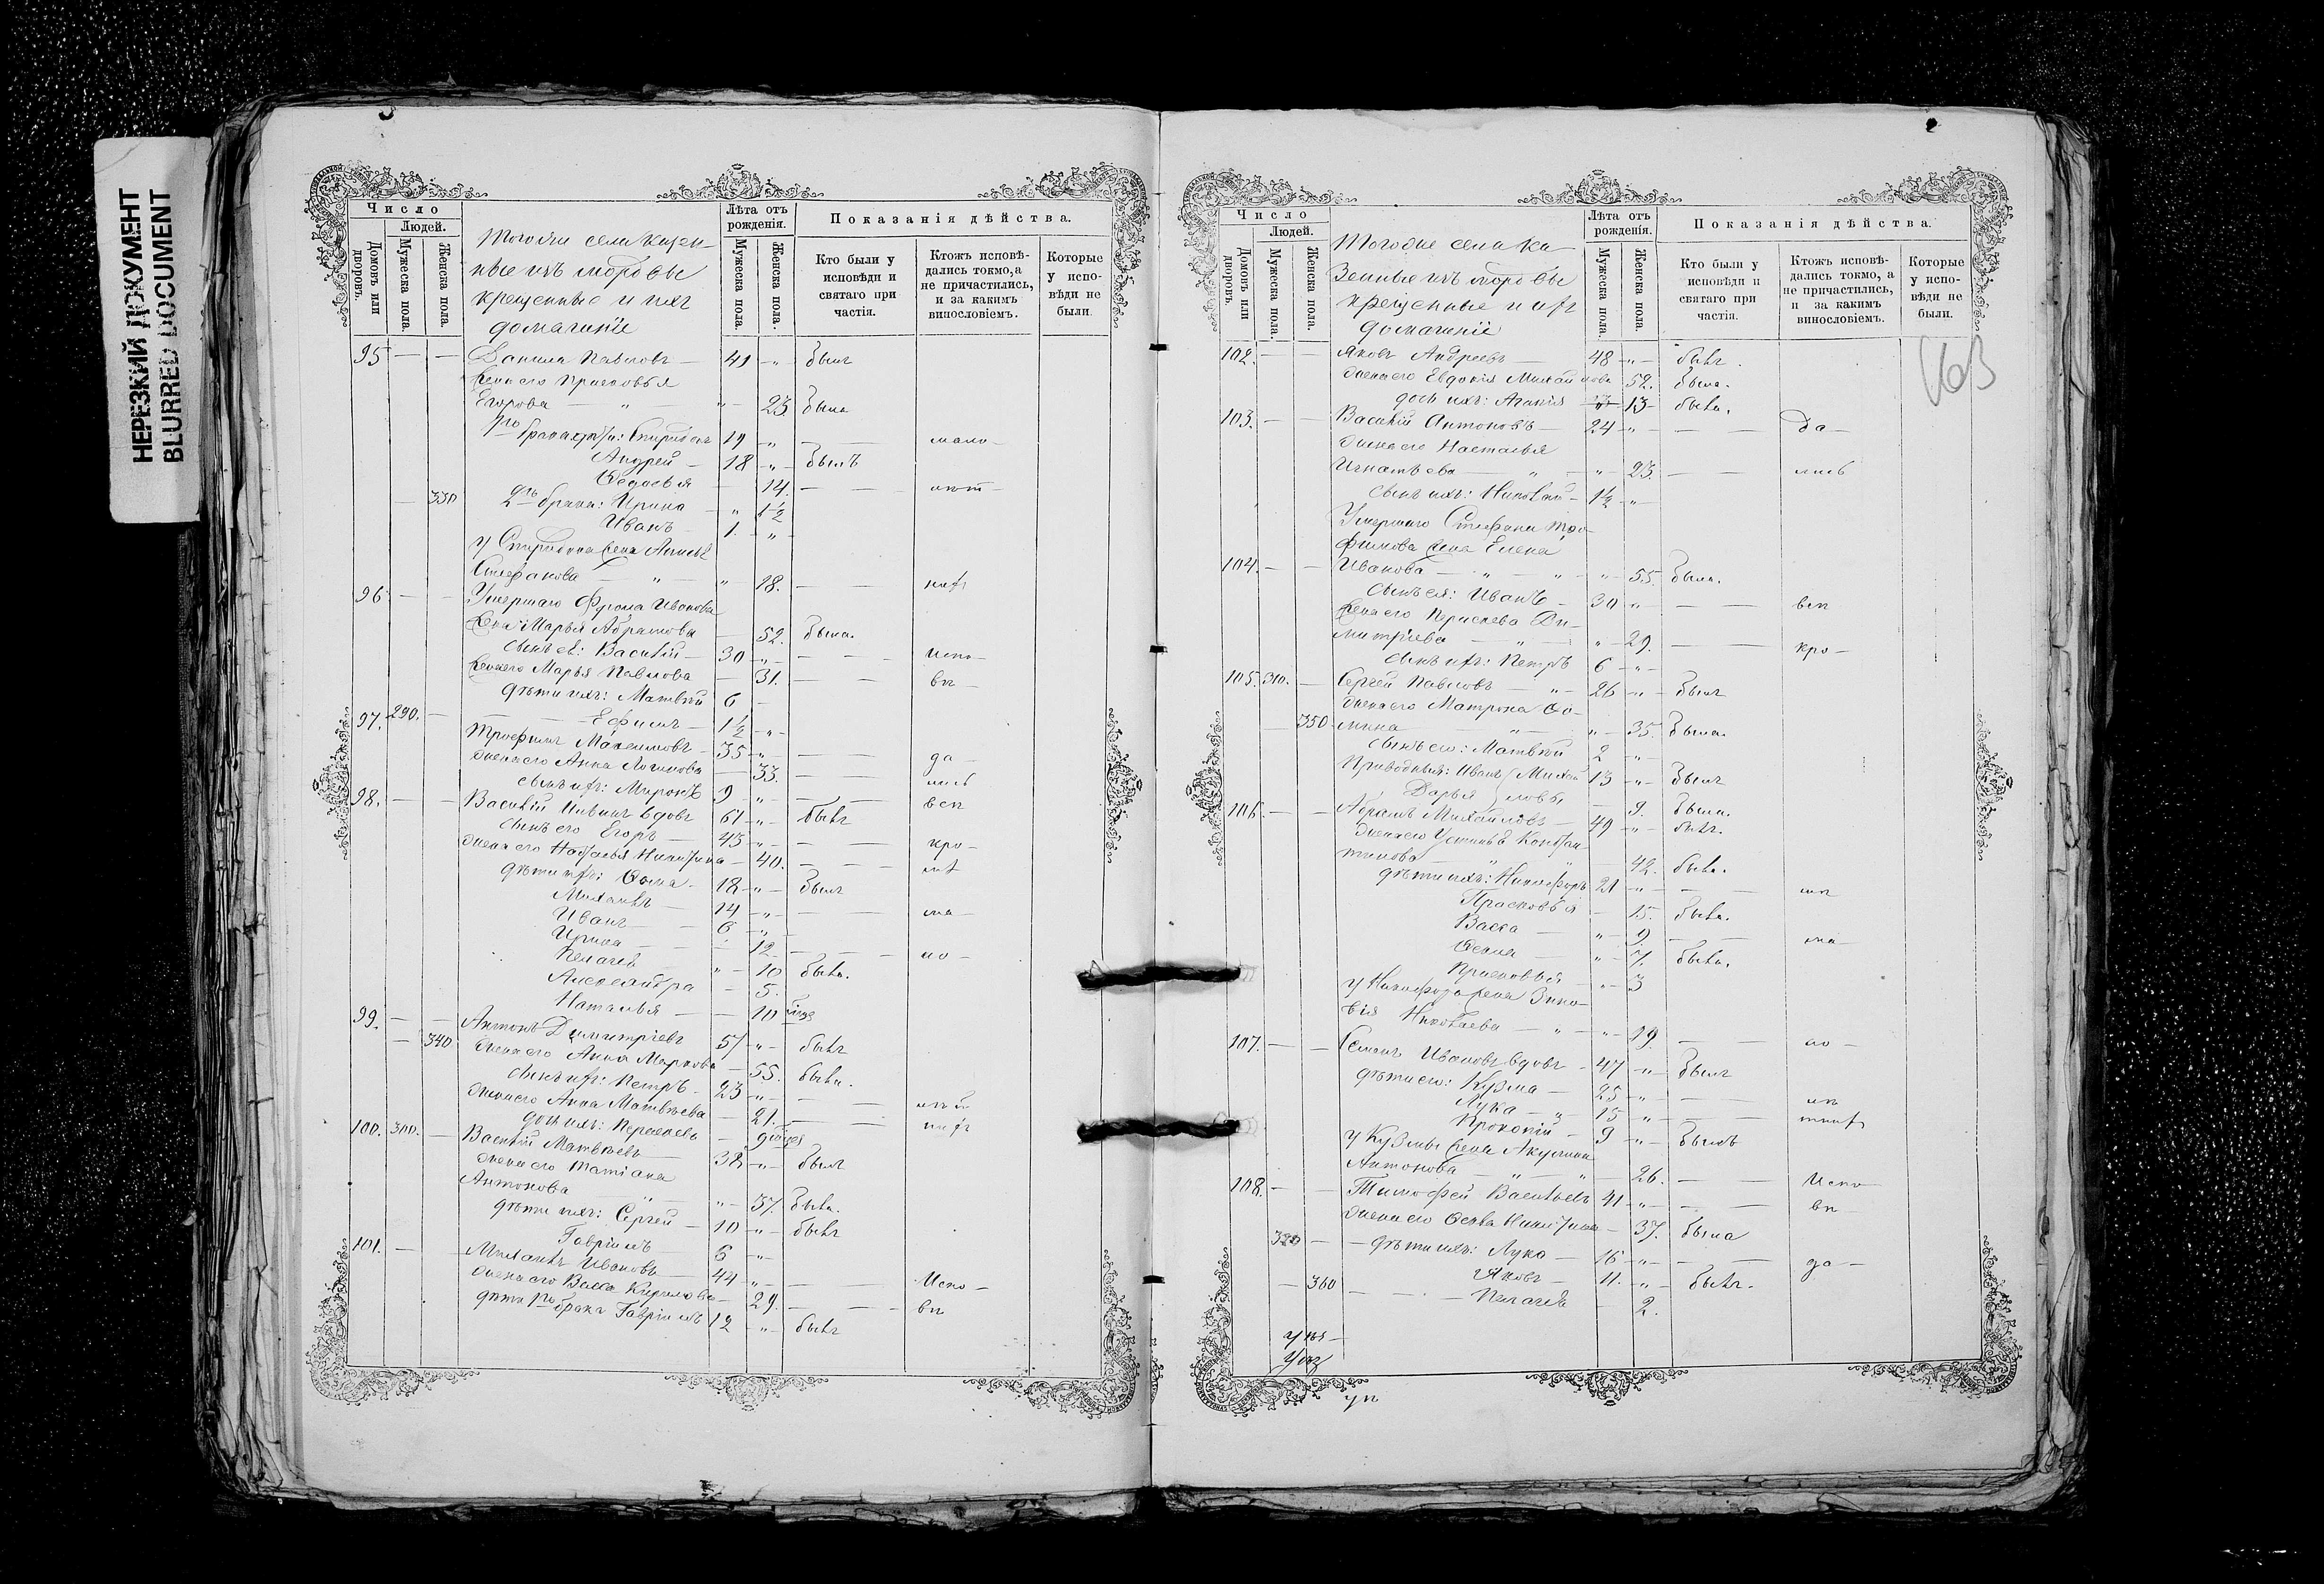 НЕРЕЗКИЙ ДОКУМЕНТ
BLURRED DOCUMENT
Число
Людей.
Домовъ или дворовъ.
Мужеска пола.
Женска пола.
Тогоже села казен
ные изъ мордвы
крещенные и ихъ
домашніе
Лѣта отъ рожденія.
Мужеска пола.
Женска пола.
Показанія дѣйства.
Кто были у исповѣди и святаго при частія.
Ктожъ исповѣ-дались токмо, а не причастились, и за какимъ винословіемъ.
Которые у испо-вѣди не были.
95 — — Данила Павловъ — 41 -„- былъ
Жена его Прасковья
Егорова — „ — „ — 23 была
1го брака дѣти: Спиридонъ 19 -„- — — мало —
Андрей — 18 -„- былъ
Ѳедосья 14. — —
330 2го брака: Ирина — „ 1½
Иванъ 1. — „ —
у Спиридона жена
Стефанова — „ „ 18. — — нихъ
96 — — Умершаго Фрола Иванова
жена Марья Абрамова — 52. была.
сынъ ея: Василій — 30 -„- — — Испо—
Жена его Марья Павлова — 31. — — вѣ—
дѣти ихъ: Матвѣй 6 —
290. — — Ефимъ — 1½ -„-
97. Трофимъ Максимовъ — 35 -„- — — да —
жена его Анна Логинова — 33. — — лись
сынъ ихъ: Миронъ 9 -„-
98. — — Василій вдовъ 61 -„- былъ
сынъ его Егоръ — 45 -„- — кро—
жена его Настасья Никитина — 40. — —
дѣти ихъ: Ѳома — 18 -„- былъ
Михаилъ — 14 -„- — ма—
Иванъ — 6 -„-
Ирина — — 12 — — ло —
Пелагея „ — 10 была.
Александра — 5.
Наталья — — 10
99. — — Антонъ Димитріевъ 57 -„- былъ
340 жена его Анна Маркова — 55. была.
сынъ ихъ: Петръ — 23 -„- — —
жена его Анна Матвѣева — 21. — — нихъ
дочь ихъ: Пераскева — 9
100. 300. — Василій Матвѣевъ — 38 -„- былъ
жена его Татіана
Антонова — „ „ — 37. была.
дѣти ихъ: Сергей — 10 -„- былъ
Гавріилъ 6 -„-
101. — — Михаилъ Ивановъ — 44 -„- — — Испо —
жена его Васса Кирилова — 29. — — вѣ
дѣти 1го брака Гавріилъ 12 -„- былъ
Число
Людей.
Домовъ или дворовъ.
Мужеска пола.
Женска пола.
Тогоже села ка
зенные изъ мордвы
крещенные и ихъ
домашніе
Лѣта отъ рожденія.
Мужеска пола.
Женска пола.
Показанія дѣйства.
Кто были у исповѣди и святаго при частія.
Ктожъ исповѣ-дались токмо, а не причастились, и за какимъ винословіемъ.
Которые у испо-вѣди не были.
163
102. — Яковъ Андреевъ 48 -„- былъ.
жена его Евдокія Михайлова 52. была.
дочь ихъ: Агапія 13 — была.
103. — Василій Антоновъ — 24 -„- — — да —
жена его Настасья
Игнатьева — „ — „ — 23. — — лись
сынъ ихъ: Николай — 1½ -„-
Умершаго Стефана Тро
фимова жена Елена
104. — — Иванова — „ — „ 55. была.
сынъ ея: Иванъ — 30 -„- — —
жена его Пераскева Ди
митріева — „ — „ — 29. — — кро —
сынъ ихъ: Петръ 6 -„-
105. 310. — Сергей Павловъ — „ — 26 -„- былъ
жена его Матрона Ѳо
350 — мина — „ — „ — 35. была.
сынъ его: Матвѣй 2 -„-
Приводныя: Иванъ Михай 13 -„- былъ
Дарья ловы — 9. была.
106. — — Абрамъ Михайловъ — 49 -„- былъ.
жена его Устинья Констан
тинова — „ „ — 42. была.
дѣти ихъ: Никифоръ 21 -„- — —
Прасковья — 15. была.
Васса — „ — 9. — — ма—
Ѳекла — „ — 7. была.
Прасковья — „ — 3
у Никифора жена Зино
вія Николаева — „ — „ — 19. — — ло —
107. — — Семенъ Ивановъ вдовъ — 47 -„- былъ
дѣти его: Кузма — 25 -„- — —
Лука — „ — 15 -„- — —
Прокопій — 9 -„- былъ
у Кузмы жена Акулина
Антонова — „ — „ — 26. — — Испо—
108. — — Тимофей Васильевъ 41 -„- — — вѣ—
жена его Ѳекла Никитина — 37. была
320 — — дѣти ихъ: Лука — 16 -„- — — да —
360 Яковъ — 11. -„- былъ.
Пелагея — 2.